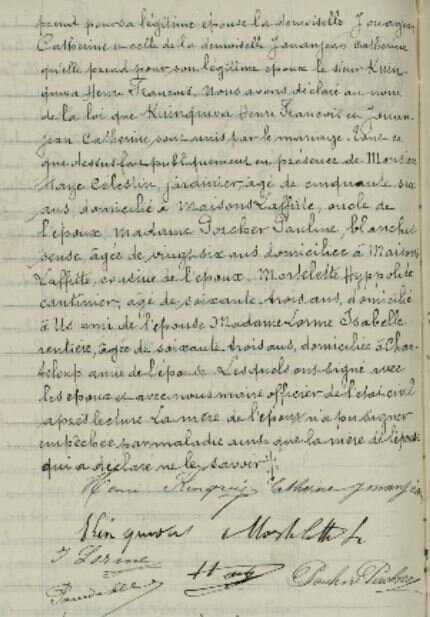 prend pour sa légitime épouse la demoiselle Jouanjean
Catherine et celle de la demoiselle Jouanjean Catherine
qu'elle prend pour son légitime époux le sieur Kuin-
quiva Henri François. Nous avons déclaré au nom
de la loi que Kuinquiva Henri François et Jouan-
jean Catherine sont unis par le mariage. Tout ce
que dessus fait publiquement en présence de Monsieur
Haye Célestin, jardinier âgé de cinquante six
ans, domicilié à Maisons Laffitte, oncle de
l'époux madame Porcher Pauline, blanchis
seuse, âgée de vingt six ans domiciliée à Maisons
Laffitte, cousine de l'époux. Morselette Hyppolite
cantinier, âgé de soixante trois ans, domicilié
à Us ami de l'épouse Madame Lorme Isabelle
rentière, âgée de soixante trois ans, domiciliée à Chan-
teloup amie de l'épouse. Lesquels ont signé avec
les époux et avec nous maire officier de l'état civil
après lecture la mère de l'époux n'a pu signer
empêchée par maladie ainsi que la mère de l'épouse
qui a déclaré ne le savoir
Henri Catherine Jouanjean
I Lorme